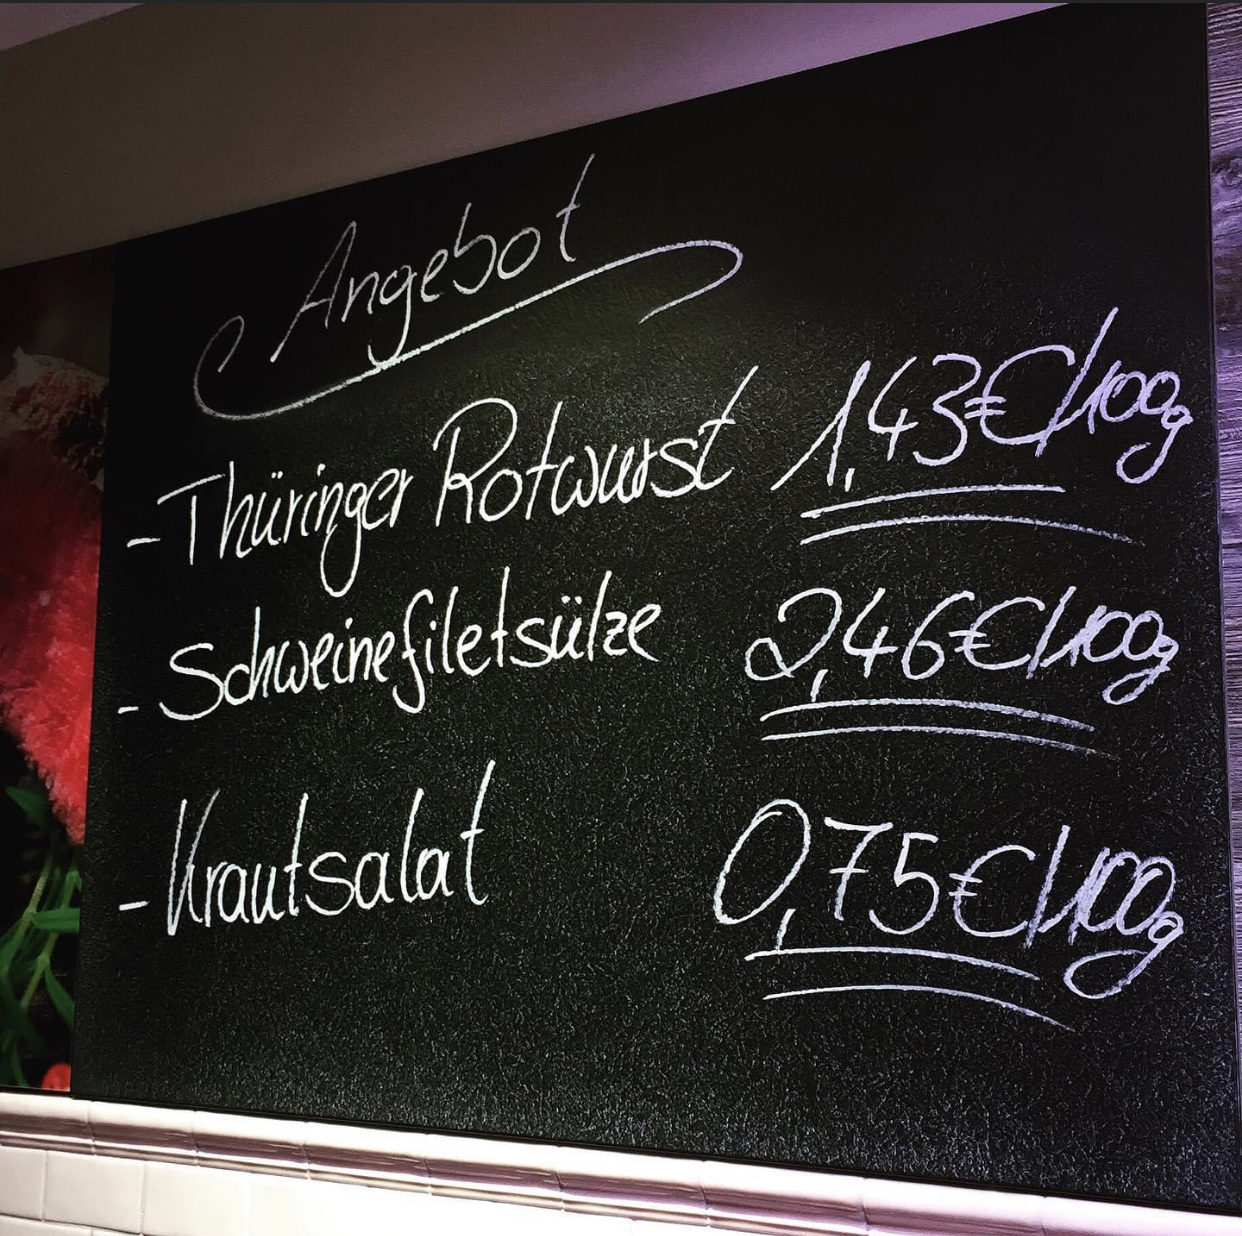 Angebot
- Thüringer Rotwurst 1,43€/100g
- Schweinefiletsülze 2,46€/100g
- Krautsalat 0,75€/100g